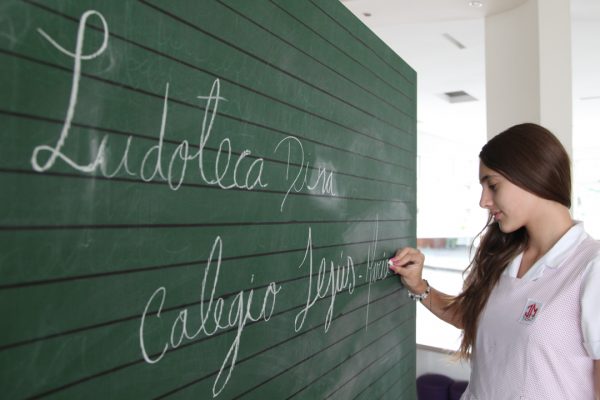 Ludoteca Dina
Colegio Jesús - María
JM